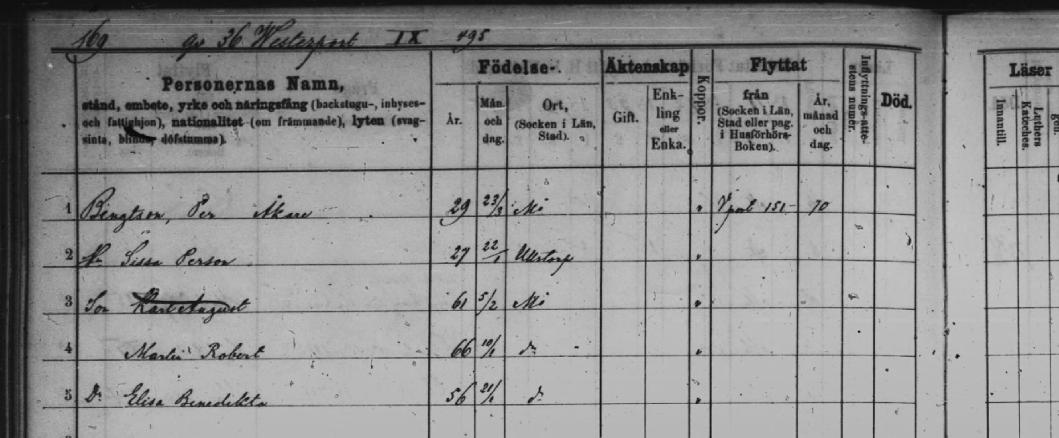 169 gv 36 Westerport IX 495
Personernas Namn,
stånd, embete, yrke och näringsfång (backstugu-, inhyses-
och fattighjon), nationalitet (om främmande), lyten (svag-
sinta, blinda, döfstumma).
Födelse-
År.
Mån.
och
dag.
Ort,
(Socken i Län,
Stad).
Äktenskap
Gift.
Enk-
ling
eller
Enka.
Koppor.
Flyttat
från
(Socken i Län,
Stad eller pag.
i Husförhörs-
Boken).
År,
månad
och
dag.
Inflyttnings-atte-
stens numer.
Död.
Läser
Innantill.
Luthers
Kateches.
1 Bengtson, Per Åkare 29 23/3 Mö " V port 151 - 70
2 Hu Sissa Person 27 22/1 Ullstorp "
3 Son Karl August 61 5/2 Mö "
4 Martin Robert 66 10/1 do "
5 Dr Elisa Benedikta 56 21/1 do "